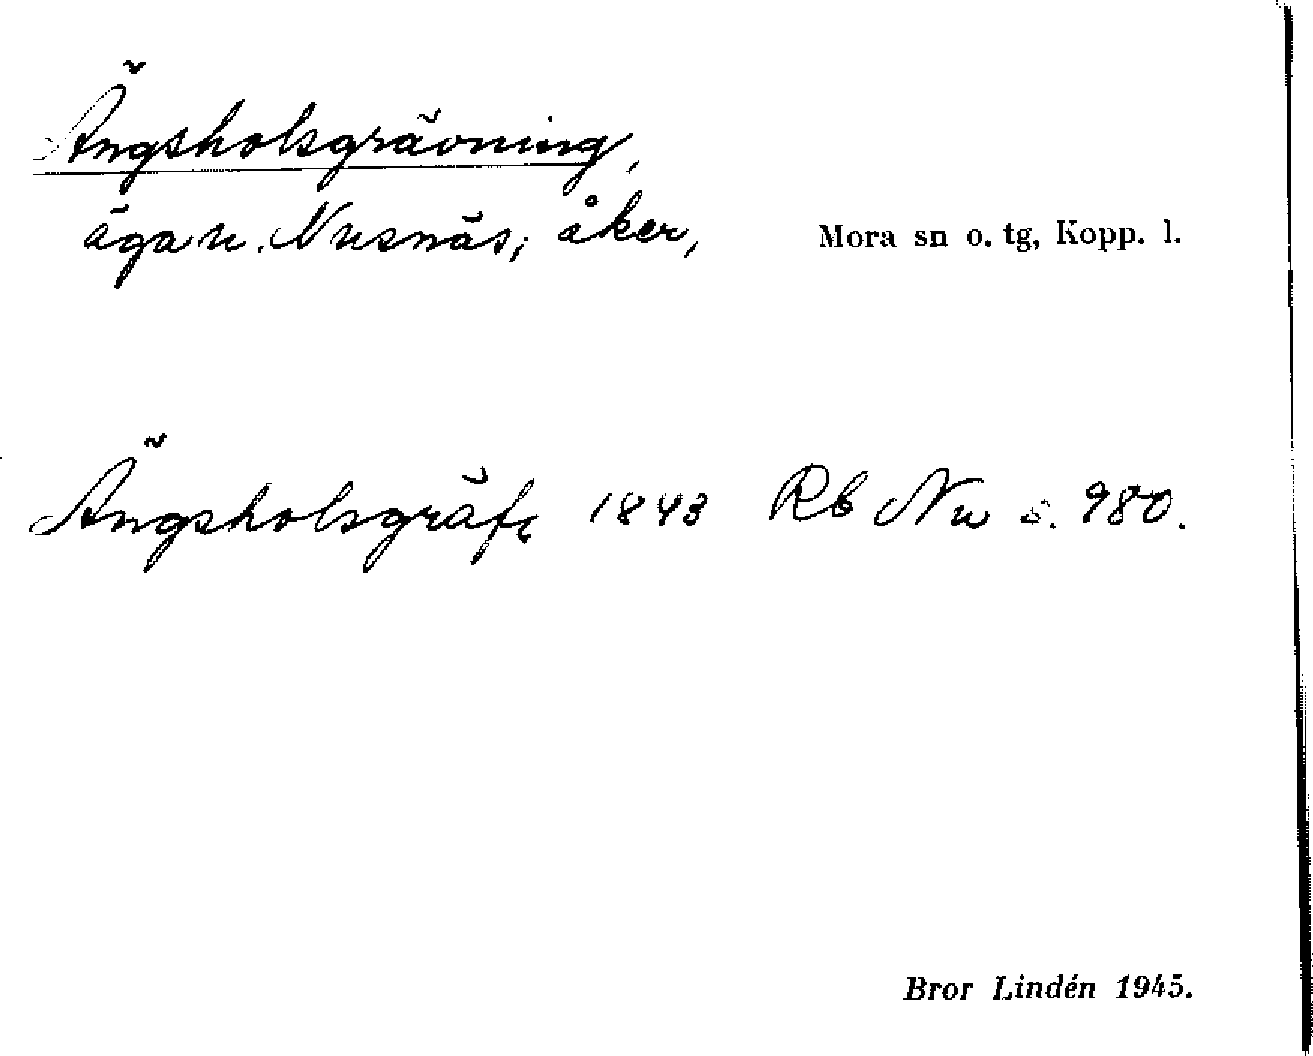 Ängsholsgrävning,
äga u. Nusnäs; åker,
Mora sn o. tg, Kopp. l.
Ängsholsgräfn 1843 Rb Nu s. 980.
Bror Lindén 1945.